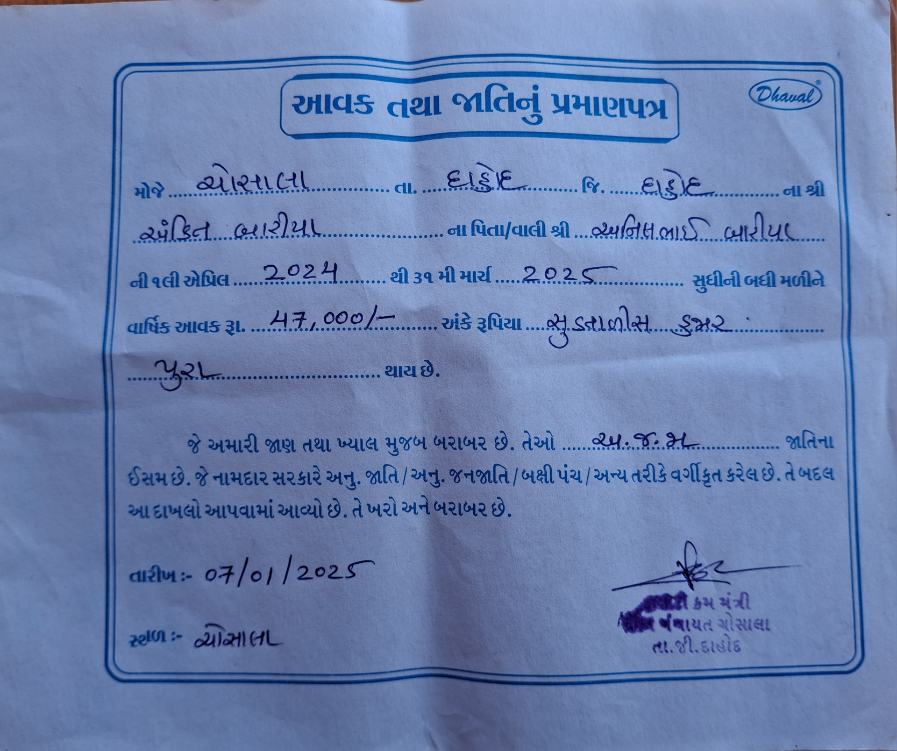 આવક તથા જાતિનું પ્રમાણપત્ર
Dhaval
મોજે ચોસાલા તા. દાહોદ જિ. દાહોદ ના શ્રી
અંકિત બારીયા ના પિતા/વાલી શ્રી અનિલભાઈ બારીયા
ની ૧લી એપ્રિલ 2024 થી ૩૧ મી માર્ચ 2025 સુધીની બધી મળીને
વાર્ષિક આવક રૂા. 47,000/- અંકે રૂપિયા સુડતાળીસ હજાર
પુરા થાય છે.
જે અમારી જાણ તથા ખ્યાલ મુજબ બરાબર છે. તેઓ અ.જ.જા જાતિના
ઈસમ છે. જે નામદાર સરકારે અનુ. જાતિ/અનુ. જનજાતિ/બક્ષી પંચ/અન્ય તરીકે વર્ગીકૃત કરેલ છે. તે બદલ
આ દાખલો આપવામાં આવ્યો છે. તે ખરો અને બરાબર છે.
તારીખ :- 07/01/2025
સ્થળ :- ચોસાલા
કમ મંત્રી
પંચાયત ચોસાલા
તા.જી.દાહોદ